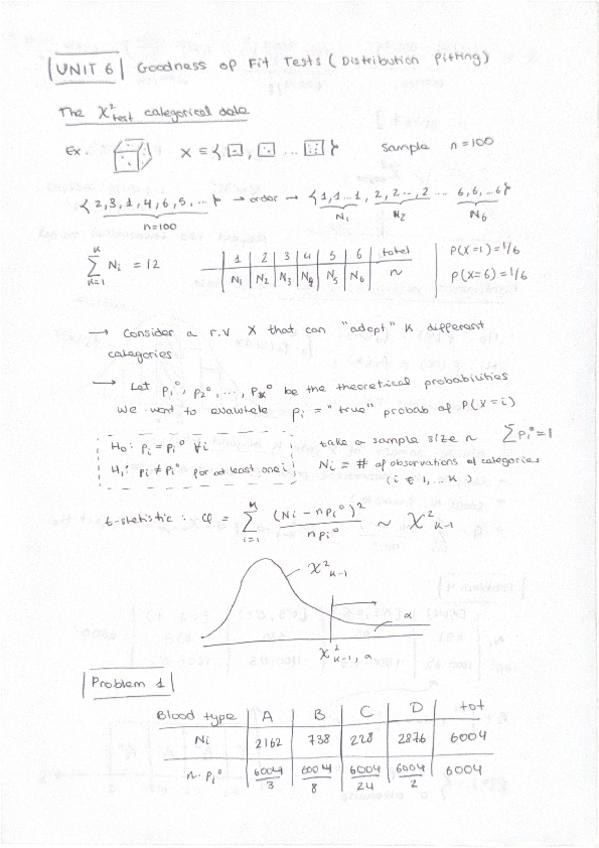 UNIT 6 Goodness of Fit Tests (Distribution Fitting)
The χ²test categorical data
Ex. X = { ⚀, ⚁ ... ⚅ } Sample n=100
{ 2,3,1,4,6,5,... } → order → { 1,1...1, 2,2...,2 ... 6,6,...6 }
n=100 N₁ N₂ N₆
1 | 2 | 3 | 4 | 5 | 6 | total
N₁ | N₂ | N₃ | N₄ | N₅ | N₆ | n
P(X=1)=1/6
P(X=6)=1/6
K ∑ K=1 Ni = 12
→ Consider a r.v X that can "adopt" K different
categories
→ Let p₁⁰, p₂⁰, ..., pₖ⁰ be the theoretical probabilities
We want to pi = "true" probab of P(X=i)
H₀: pi = pi⁰ ∀i
H₁: pi ≠ pi⁰ for at least one i
take a sample size n ∑pi⁰=1
Ni = # of observations of categories
(i ∈ 1,...K)
t-statistic: Q = K ∑ i=1 (Ni - npi⁰)² / npi⁰ ~ χ²K-1
χ²K-1
α
χ²K-1, α
Problem 1
Blood type | A | B | C | D | tot
Ni | 2162 | 738 | 228 | 2876 | 6004
n·pi⁰ | 6004/3 | 6004/8 | 6004/24 | 6004/2 | 6004